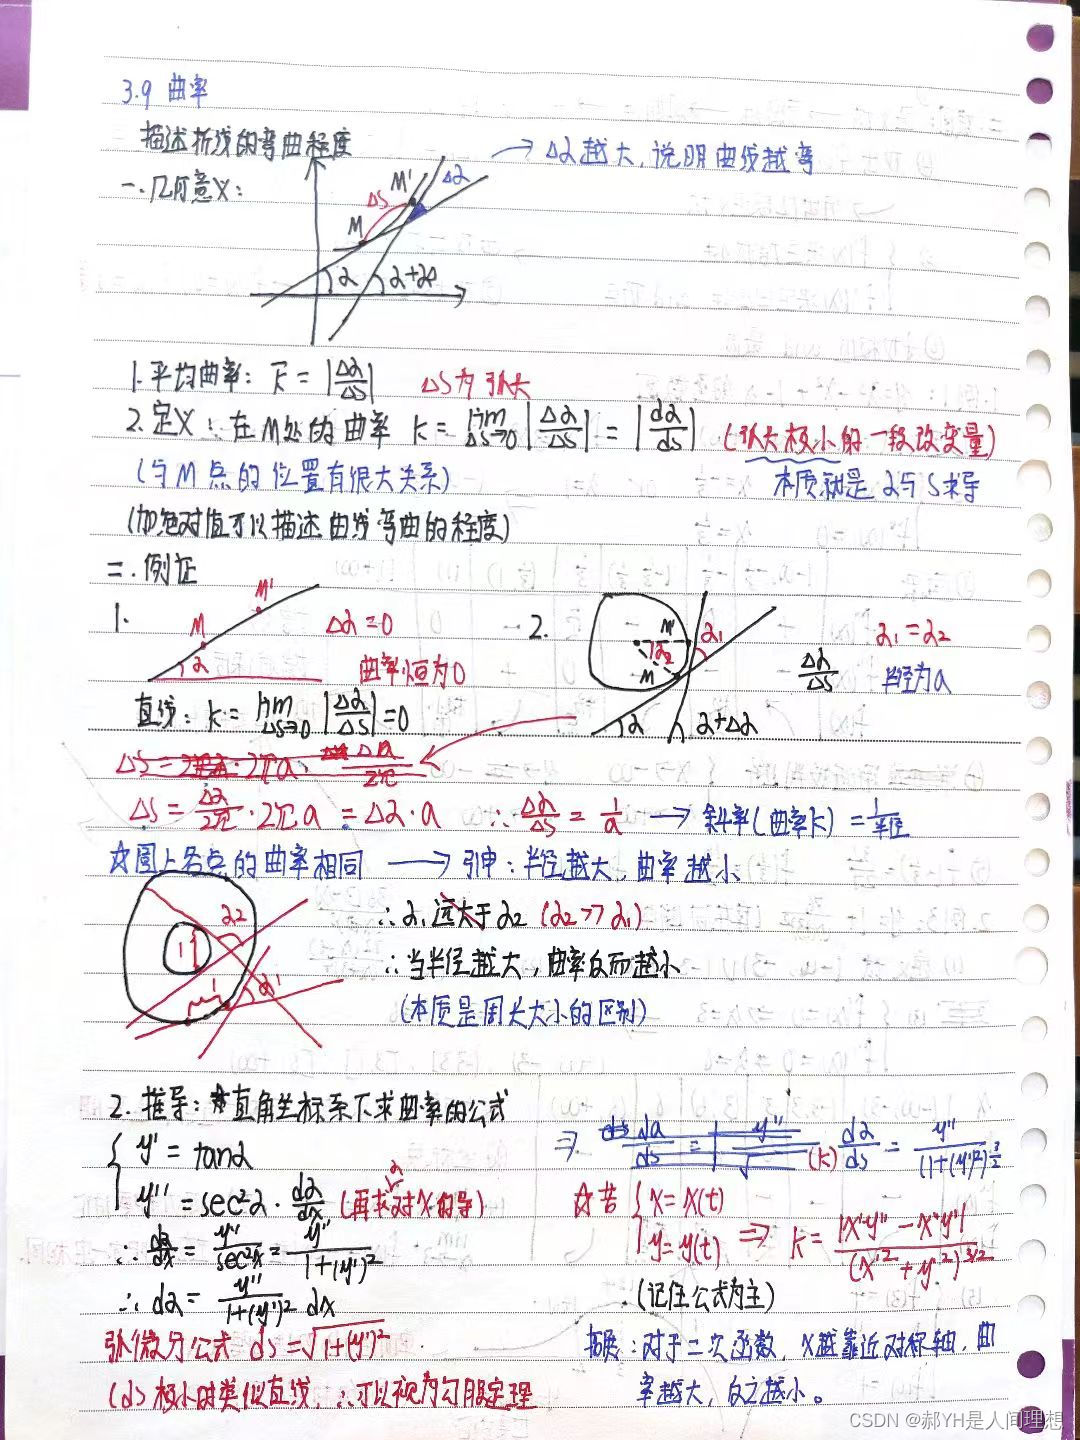 3.9 曲率
描述折线的弯曲程度
→ Δα越大,说明曲线越弯
一.几何意义:
M' Δα
ΔS
M
α α+Δα
1.平均曲率: k̅ = |Δα/ΔS| ΔS为弧长
2.定义:在M处的曲率 k = lim ΔS→0 |Δα/ΔS| = |dα/ds| (弧长极小的一段改变量)
(与M点的位置有很大关系) 本质就是α与S求导
(加绝对值可以描述曲线弯曲的程度)
二.例证
1. M M' α Δα=0
曲率恒为0
2. M' M α₂ α₁ α₁=α₂
Δα/ΔS 半径为a
α α+Δα
直线: k = lim ΔS→0 |Δα/ΔS| = 0
ΔS = Δα/2π · 2πa = Δα·a ∵ Δα/ΔS = 1/a → 斜率(曲率k) = 1/半径
☆圆上各点的曲率相同 → 引申:半径越大,曲率越小
α₂ 1 1 α₁
∴ α₁远大于α₂ (α₂>>α₁)
∴当半径越大,曲率反而越小
(本质是周长大小的区别)
2. 推导:☆直角坐标系下求曲率的公式
y' = tanα
y'' = sec²α · dα/dx (再求α对x的导)
∴ dα/dx = y''/sec²α = y''/1+(y')²
∴ dα = y''/1+(y')² dx
弧微分公式 ds = √1+(y')²
(ds极小时类似直线,∴可以视为勾股定理
⇒ (k) dα/ds = y''/(1+(y')²)^3/2
☆若 { x=x(t)
y=y(t) ⇒ k = |x'y''-x''y'|/(x'²+y'²)^3/2
(记住公式为主)
拓展:对于二次函数,x越靠近对称轴,曲
率越大,反之越小。
CSDN @郝YH是人间理想